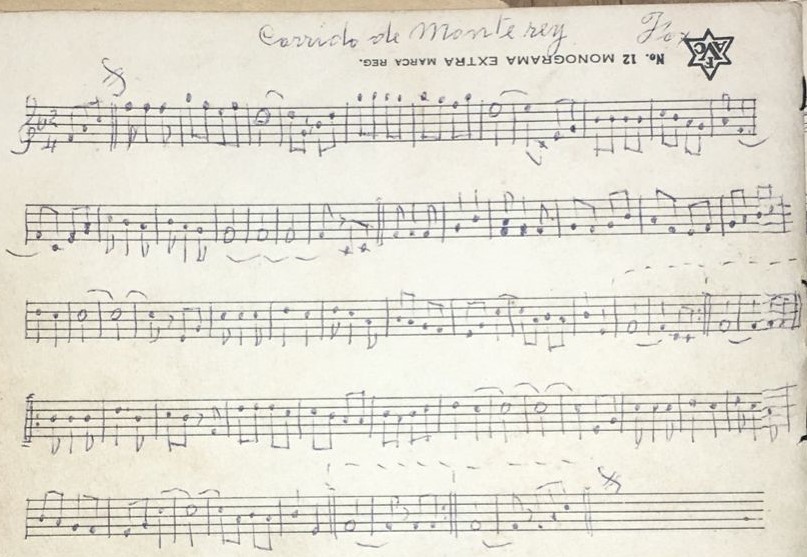 Corrido de Monterey Fox
No. 12 MONOGRAMA EXTRA MARCA REG.
FAVC
2
4